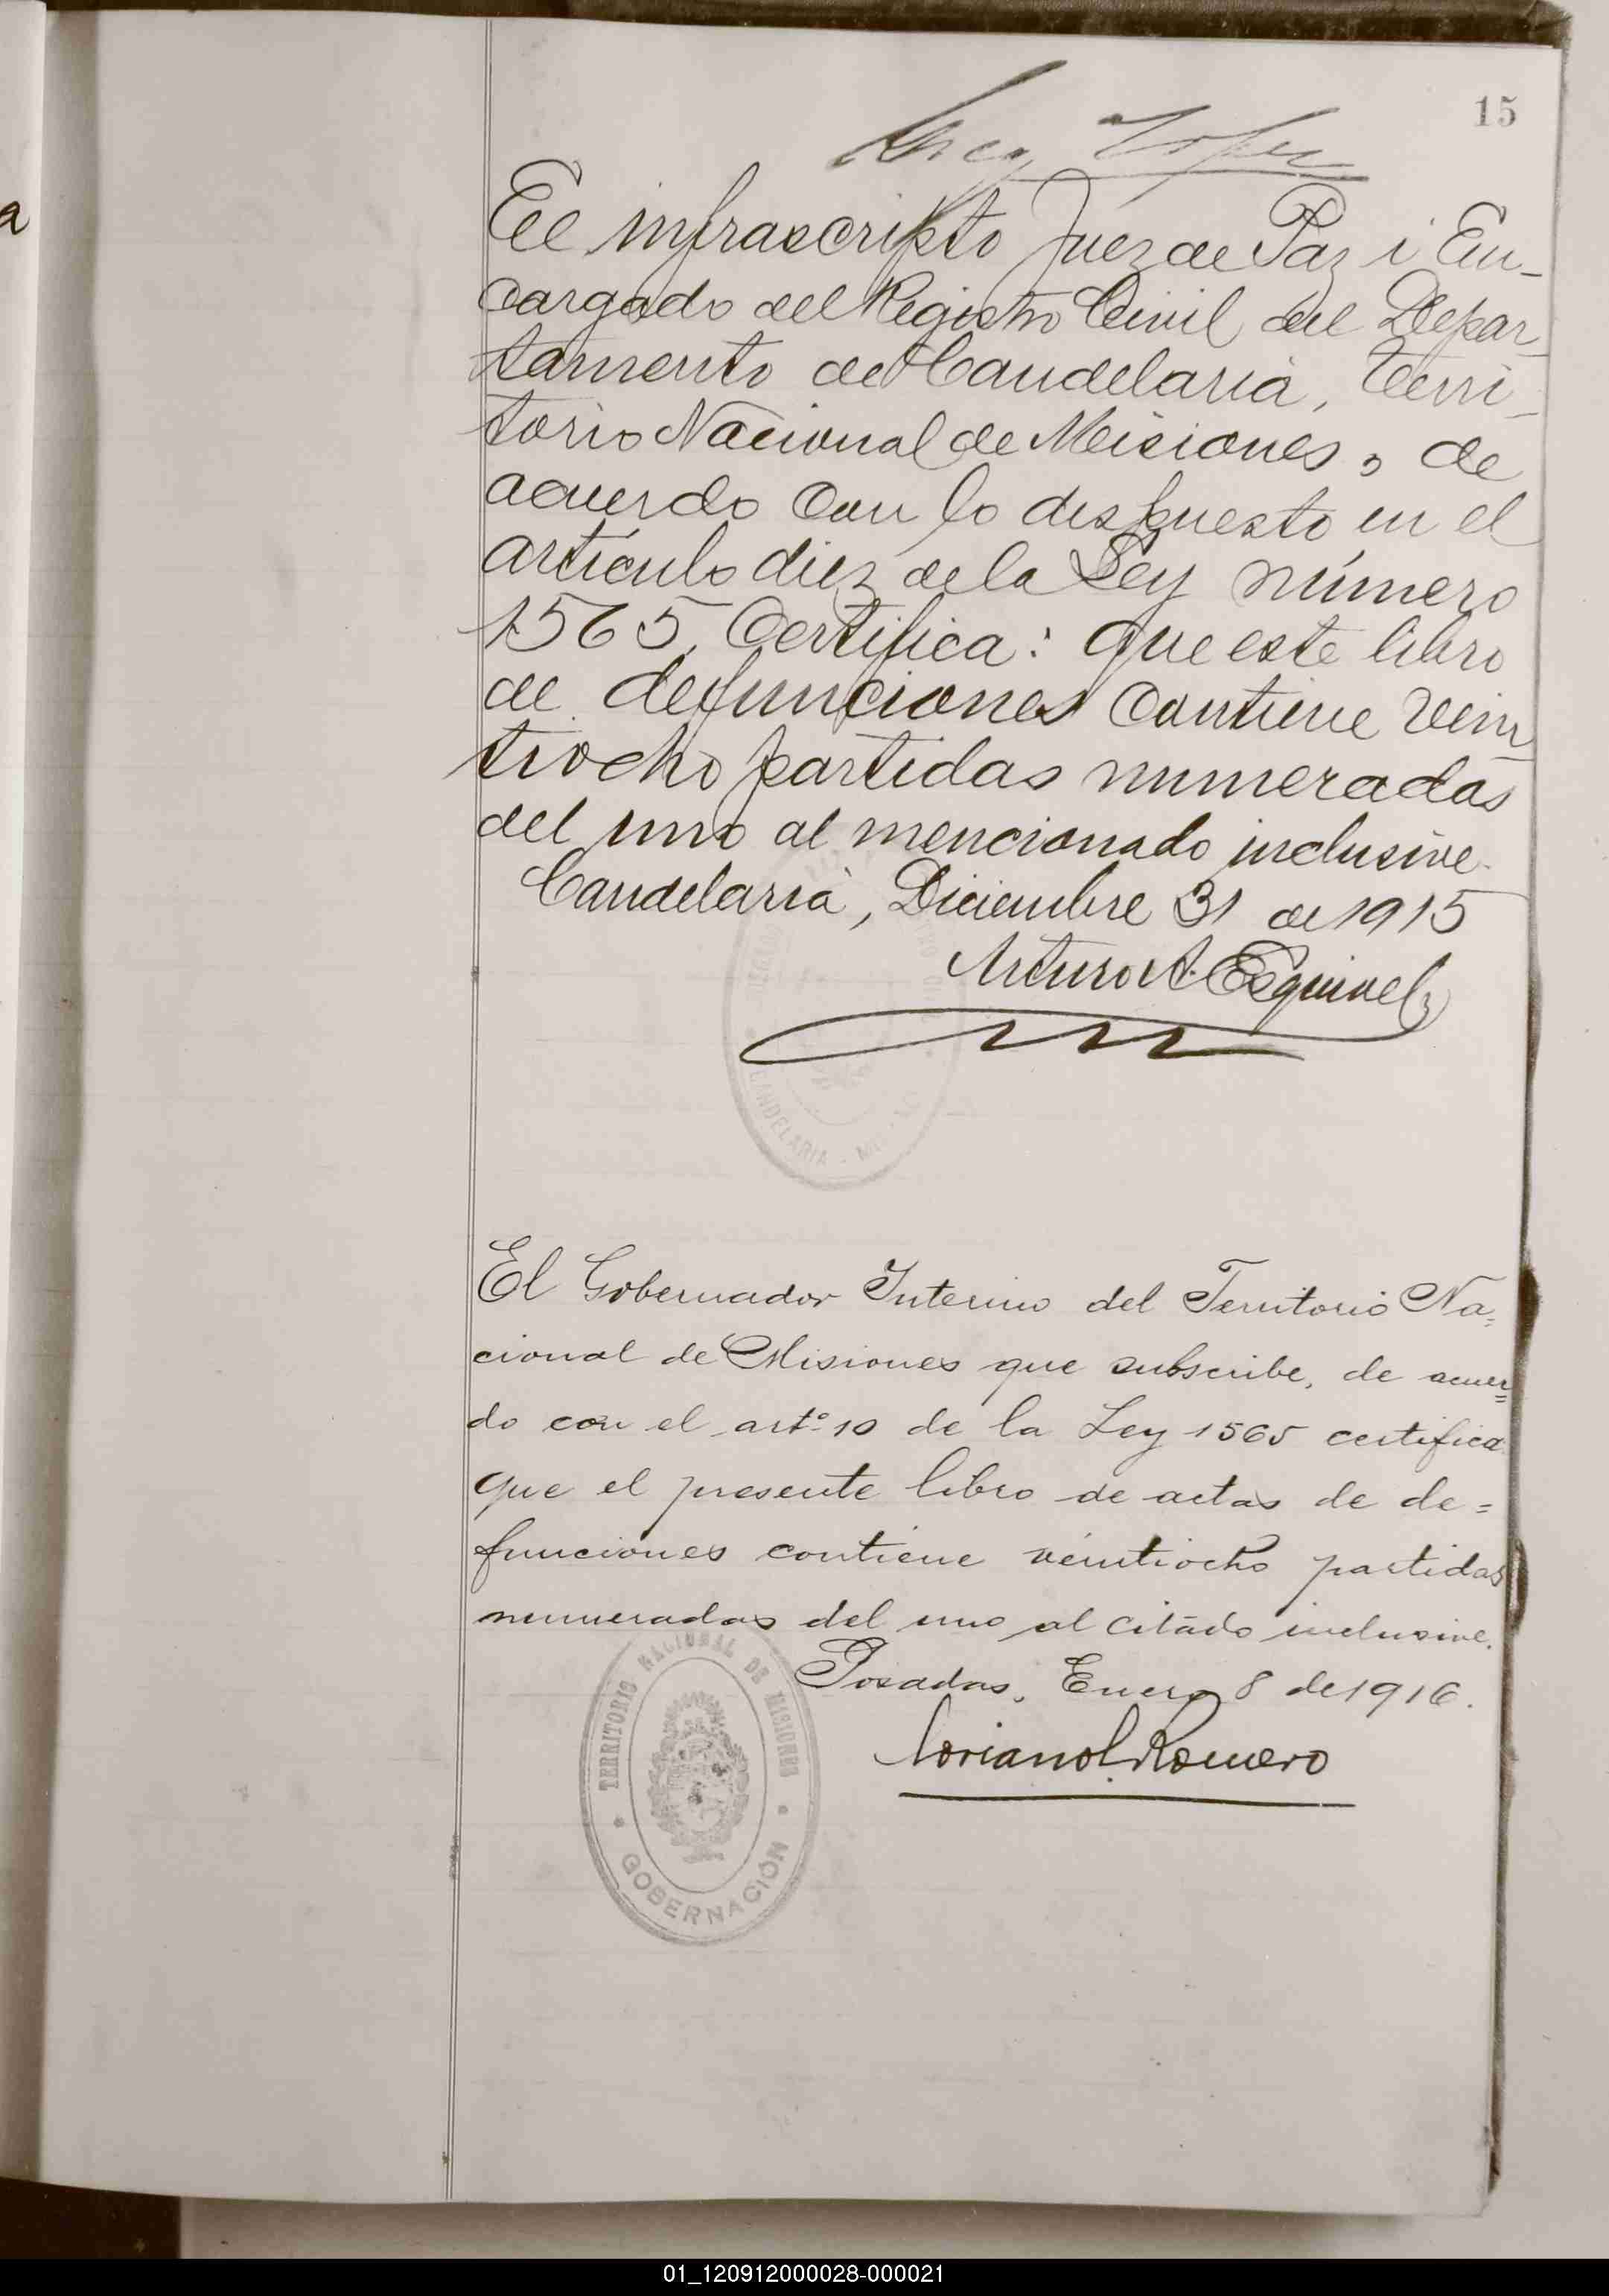 15
El infrascripto Juez de Paz i En-
cargado del Registro Civil del Depar-
tamento de Candelaria, Terri-
torio Nacional de Misiones, de
acuerdo con lo dispuesto en el
artículo diez de la Ley número
1565, Certifica: que este libro
de defunciones contiene vein-
tiocho partidas numeradas
del uno al mencionado inclusive.
Candelaria, Diciembre 31 de 1915
Arturo A. Esquivel
CANDELARIA
El Gobernador Interino del Territorio Na=
cional de Misiones que subscribe, de acuer=
do con el artº 10 de la Ley 1565 certifica
que el presente libro de actas de de=
funciones contiene veintiocho partidas
numeradas del uno al citado inclusive.
Posadas, Enero 8 de 1916.
Romero
TERRITORIO NACIONAL DE MISIONES
GOBERNACIÓN
a
01_120912000028-000021